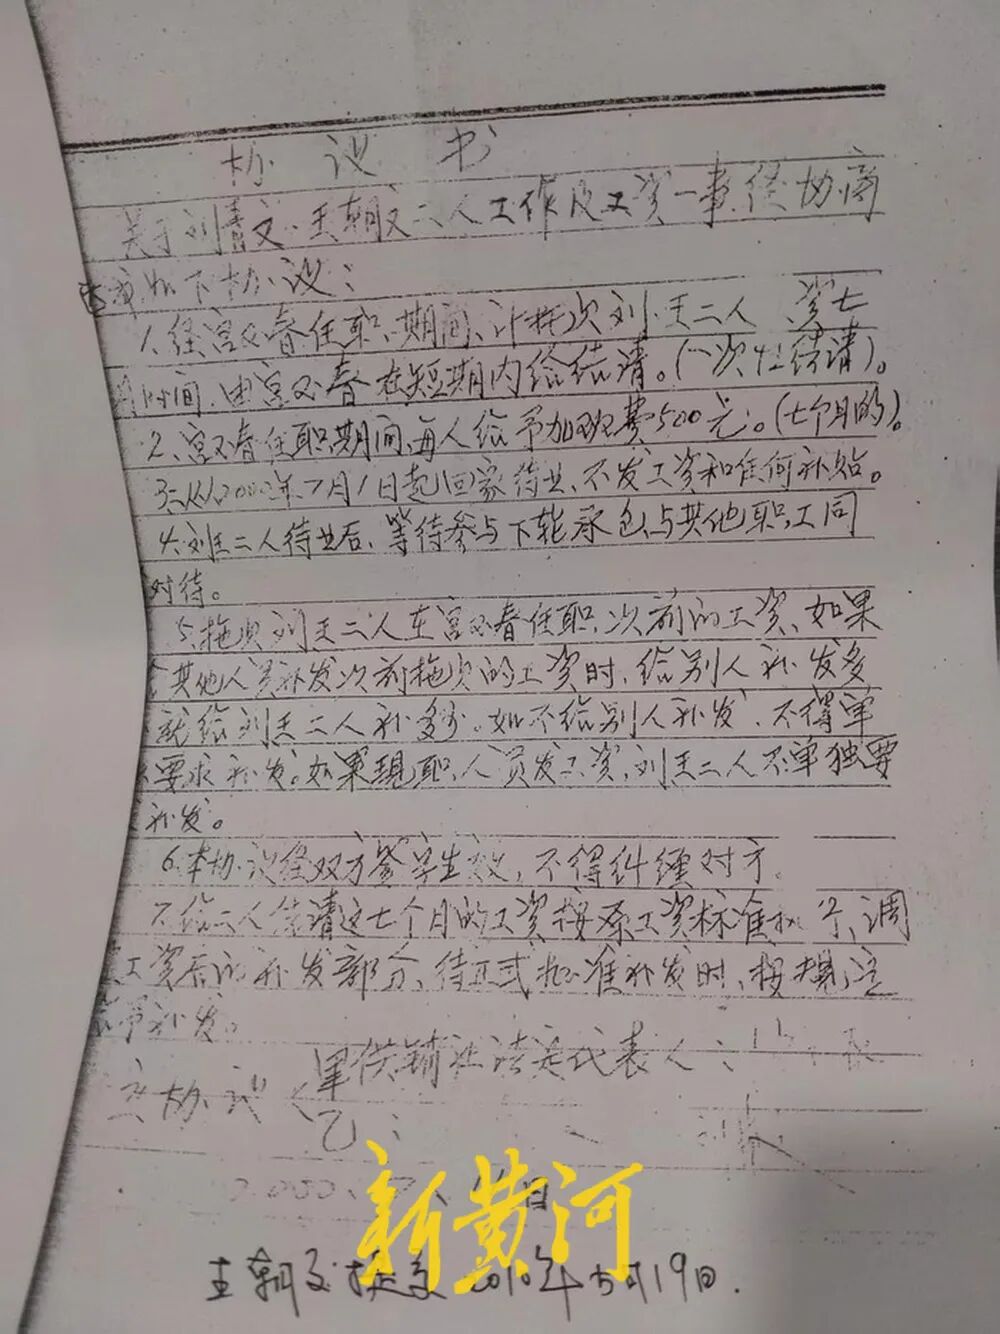 协议书
关于刘青文、王朝文二人工作及工资一事,经协商
达成如下协议:
1、经宫又春任职期间、计拖欠刘、王二人 资七
月时间,由宫又春在短期内给结请。(一次性结请)。
2、宫又春任职期间,每人给予加班费500元。(七个月的)。
3、从2000年7月1日起回家待业、不发工资和任何补贴。
4、刘王二人待业后、等待参与下轮承包,与其他职工同
对待。
5、拖欠刘王二人在宫又春任职次前的工资、如果
其他人员补发次前拖欠的工资时,给别人补发多
就给刘王二人补多少。如不给别人补发,不得单
要求补发。如果现职人员发工资,刘王二人不单独要
补发。
6、本协议经双方签字生效,不得纠缠对方。
7、给二人结请这七个月的工资按原工资标准 ,调
工资后的补发部分、待正式批准补发时,按 
予补发。
供销社法定代表人:
立协议
乙:
2000
王朝文提交 2010年5月19日.
新黄河